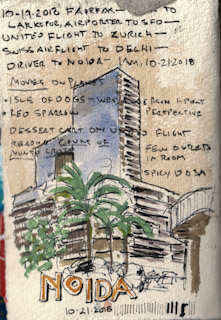 10-19-2018 FAIRFAX — TO
LARKSPUR, AIRPORTER TO SFO —
UNITED FLIGHT TO ZURICH —
SWISS AIR FLIGHT TO DELHI —
DRIVER TO NOIDA 1AM, 10-21-2018
MOVIES ON PLANES
ISLE OF DOGS — WES ANDERSON 1-POINT PERSPECTIVE
RED SPARROW
DESSERT CART ON UNITED FLIGHT
READING COUNT OF MONTE CRISTO
FEW OUTLETS IN ROOM
SPICY DOSA
NOIDA
10.21.2018